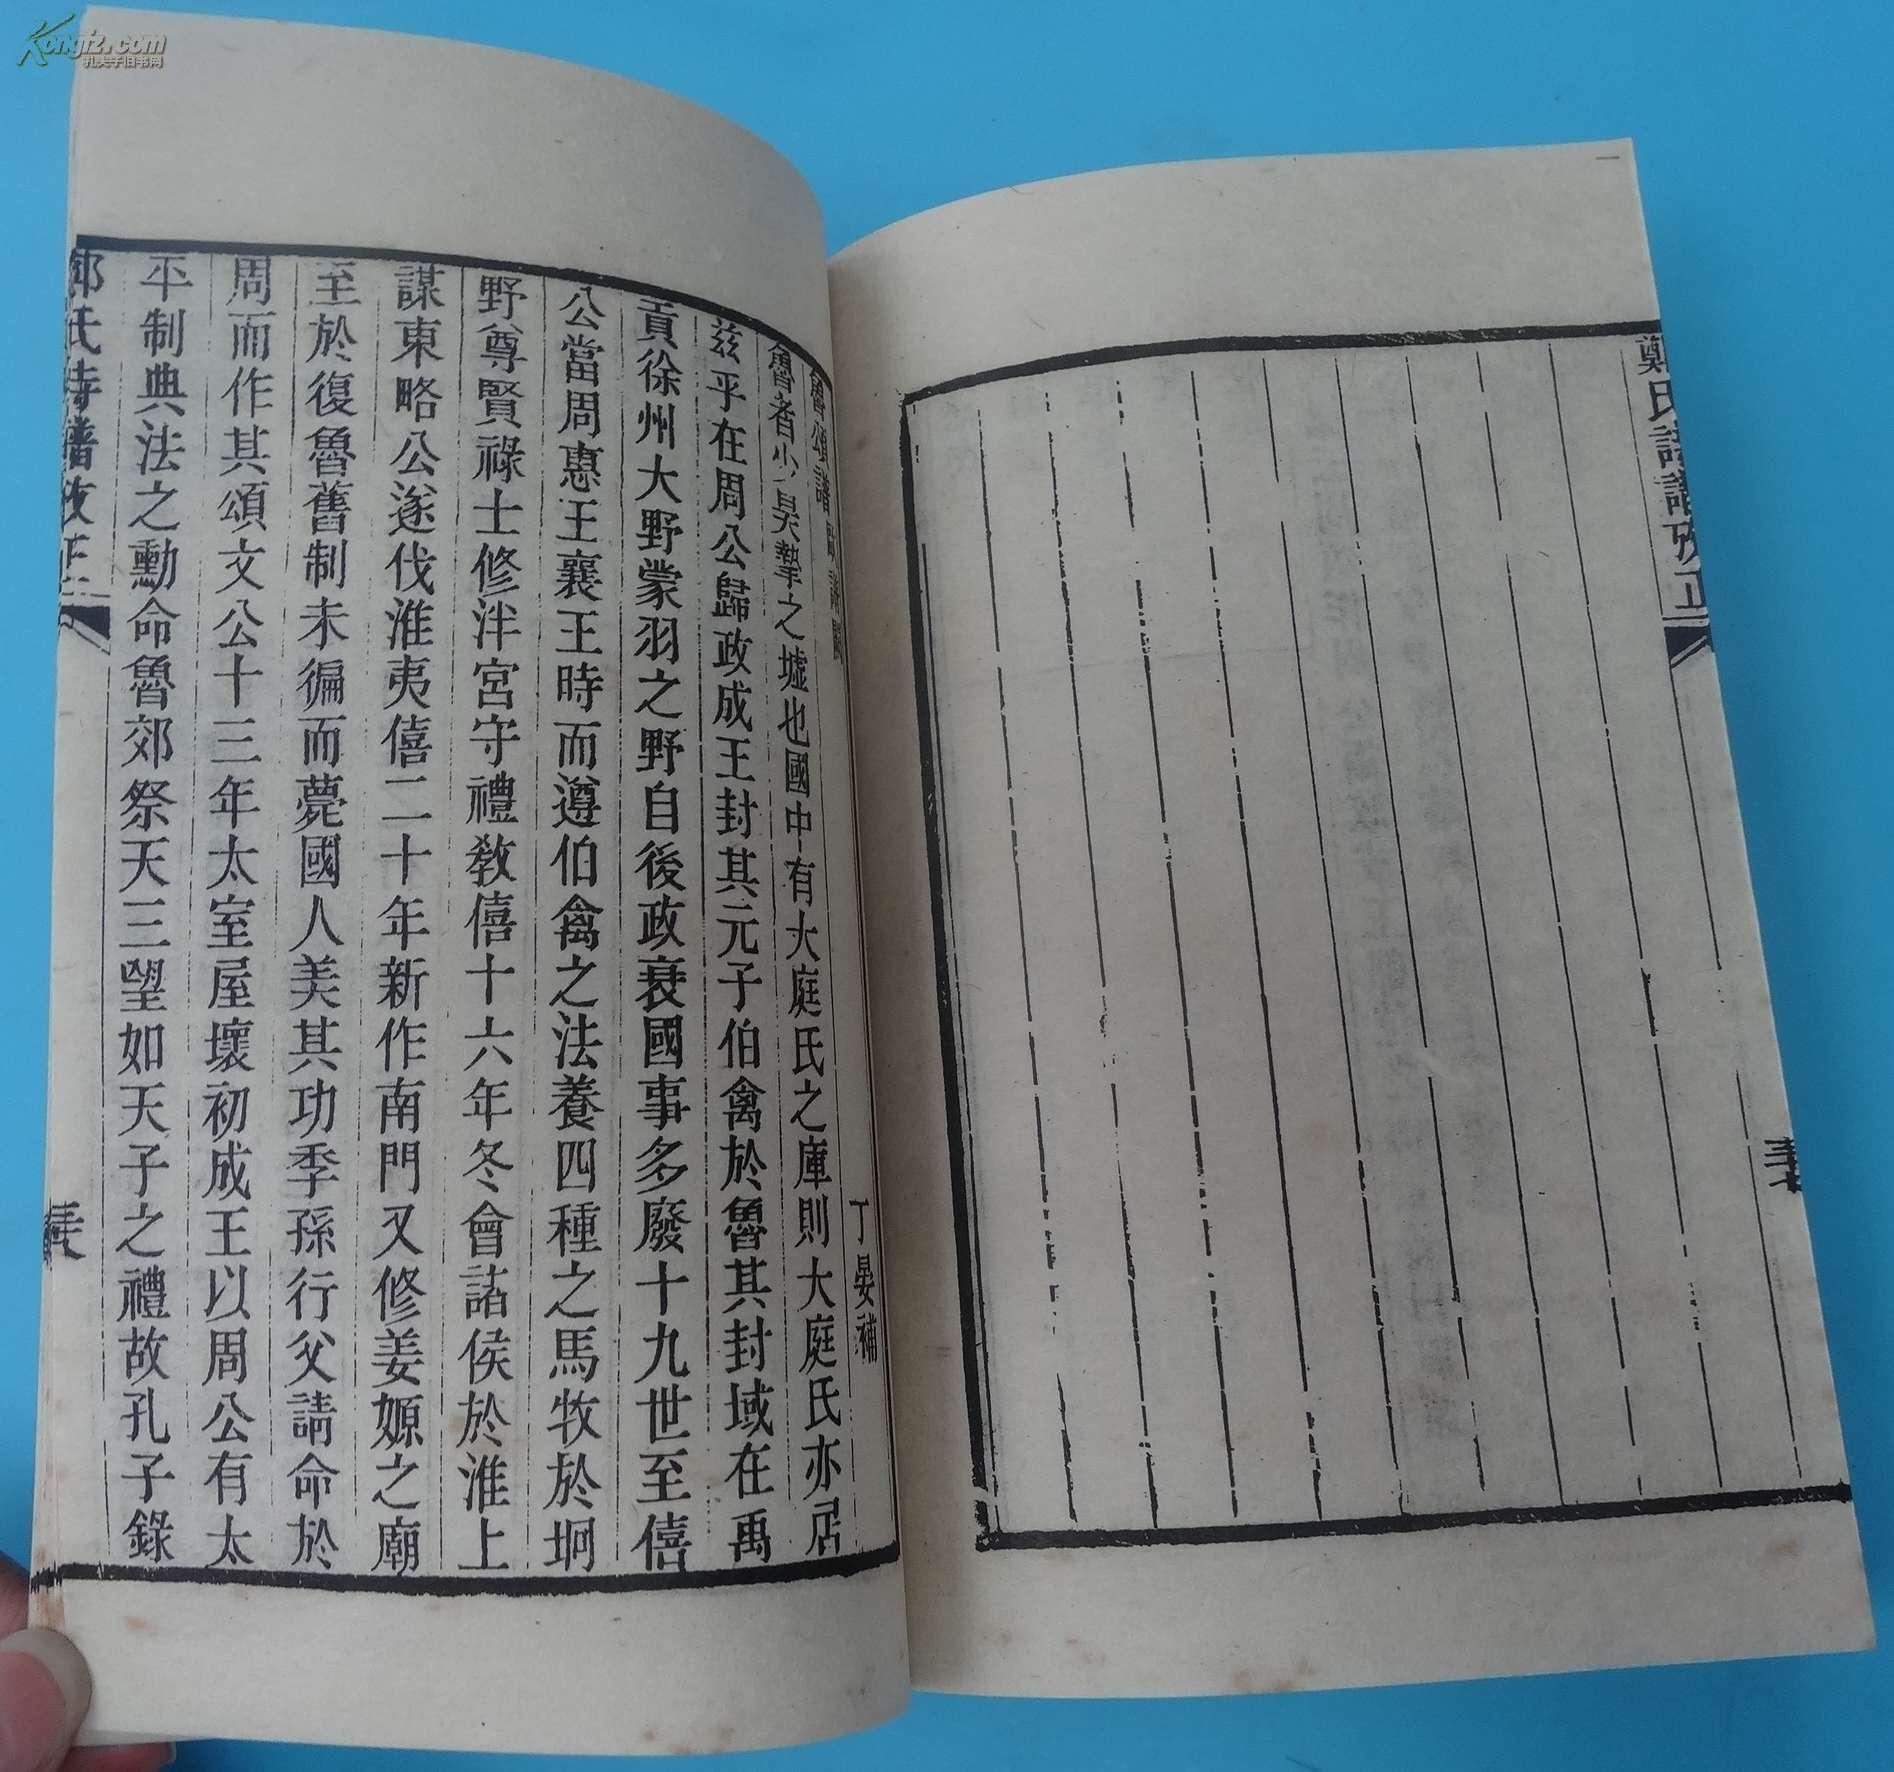 Kongfz.com
孔夫子旧书网
鄭氏詩譜攷正
魯頌譜
丁晏補
魯者少昊摯之墟也國中有大庭氏之庫則大庭氏亦居
茲乎在周公歸政成王封其元子伯禽於魯其封域在禹
貢徐州大野蒙羽之野自後政衰國事多廢十九世至僖
公當周惠王襄王時而遵伯禽之法養四種之馬牧於坰
野尊賢祿士修泮宮守禮教僖十六年冬會諸侯於淮上
謀東略公遂伐淮夷僖二十年新作南門又修姜嫄之廟
至於復魯舊制未徧而薨國人美其功季孫行父請命於
周而作其頌文公十三年太室屋壞初成王以周公有太
平制典法之勳命魯郊祭天三望如天子之禮故孔子錄
鄭氏詩譜攷正